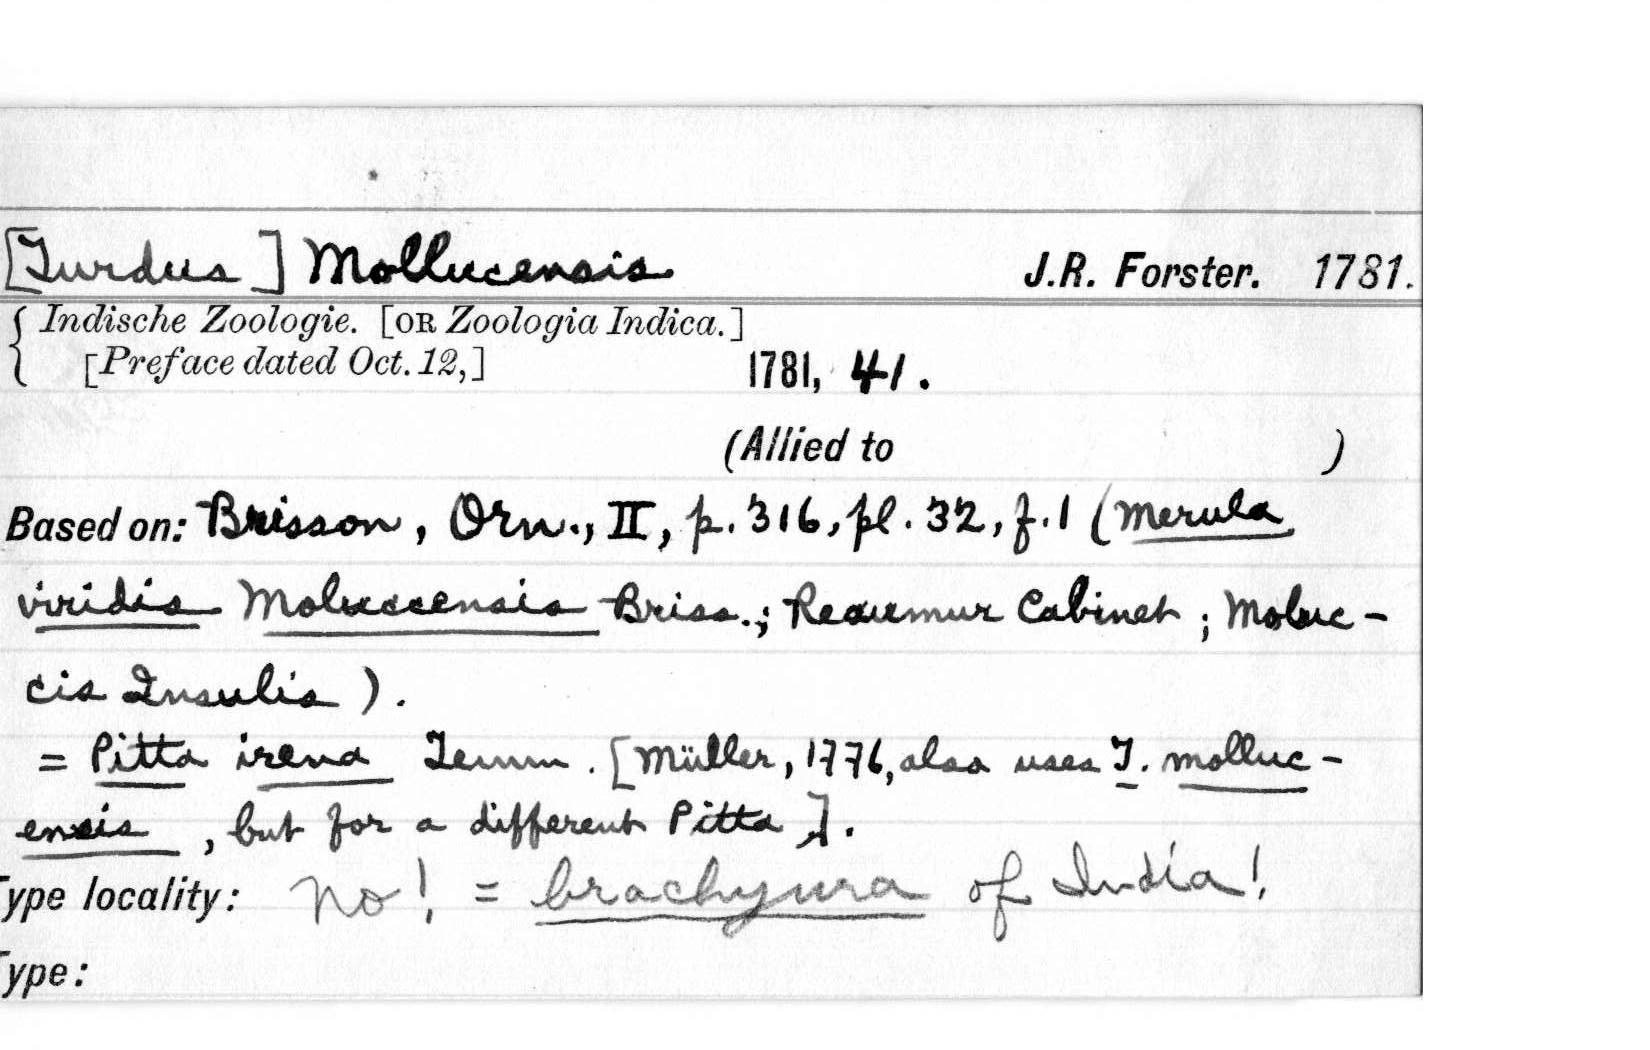 [Turdus] Mollucensis J.R. Forster. 1781.
{ Indische Zoologie. [OR Zoologia Indica.]
[Preface dated Oct. 12,] 1781, 41.
(Allied to )
Based on: Brisson, Orn., II, p. 316, pl. 32, f. 1 (Merula
viridis Moluccensis Briss.; Reaumur Cabinet; Moluc-
cis Insulis).
= Pitta irena Temm. [Müller, 1776, also uses T. molluc-
ensis, but for a different Pitta].
Type locality: No! = brachyura of India!
Type: